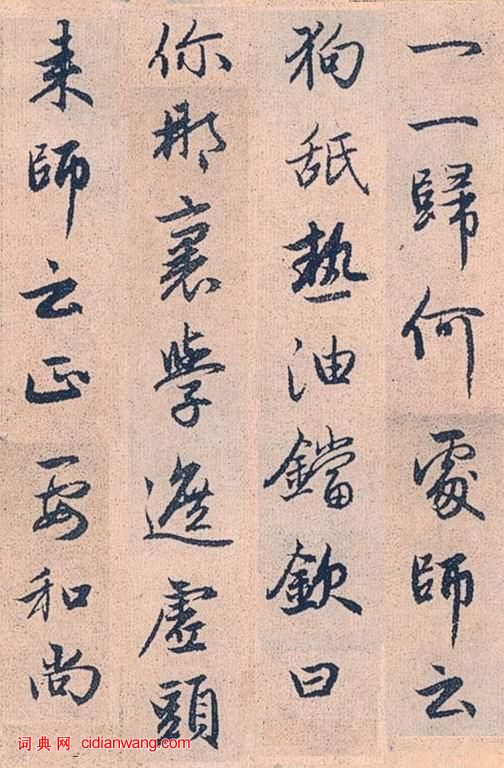 一一歸何處師云
狗舐熱油鐺欽曰
你那裏學遮虛頭
来師云正要和尚
词典网 cidianwang.com